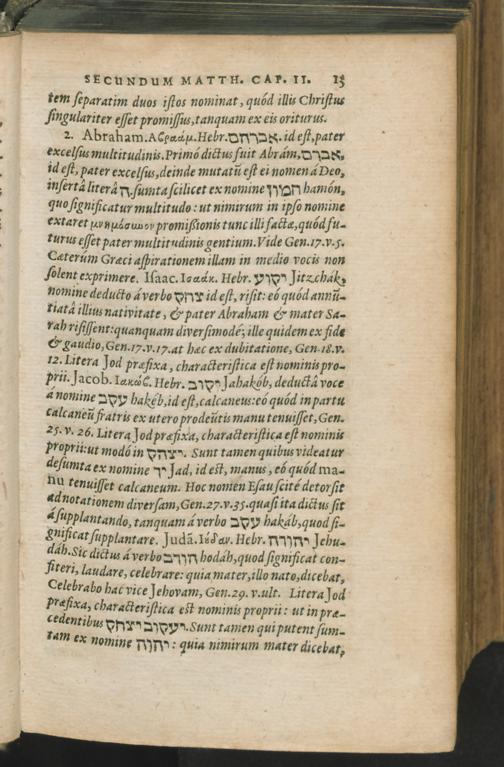 SECUNDUM MATTH. CAP. II. 15
tem separatim duos istos nominat, quód illis Christus
singulariter esset promissus, tanquam ex eis oriturus.
2. Abraham. Αβραάμ. Hebr. אברהם. id est, pater
excelsus multitudinis. Primó dictus fuit Abrám, אברם,
id est, pater excelsus, deinde mutatũ est ei nomen á Deo,
insertâ literâ ה. sumta scilicet ex nomine המון hamón,
quo significatur multitudo: ut nimirum in ipso nomine
extaret μνημόσυνον promißionis tunc illi factæ, quód fu-
turus esset pater multitudinis gentium. Vide Gen. 17. v. 5.
Cæterúm Græci aspirationem illam in medio vocis non
solent exprimere. Isaac. Ισαάκ. Hebr. Jitzchák,
nomine deducto á verbo צחק id est, risit: eó quód annũ-
tiatâ illius nativitate, & pater Abraham & mater Sa-
rah risissent: quanquam diversimodé; ille quidem ex fide
& gaudio, Gen. 17. v. 17. at hæc ex dubitatione, Gen. 18. v.
12. Litera Jod præfixa, characteristica est nominis pro-
prii. Jacob. Ιακώβ. Hebr. Jahakób, deductâ voce
á nomine עקב hakéb, id est, calcaneus: eó quód in partu
calcaneũ fratris ex utero prodeũtis manu tenuisset, Gen.
25. v. 26. Litera Jod præfixa, characteristica est nominis
proprii: ut modó in יצחק. Sunt tamen quibus videatur
desumta ex nomine יד Jad, id est, manus, eó quód ma-
nu tenuisset calcaneum. Hoc nomen Esau scité detorsit
ad notationem diversam, Gen. 27. v. 35. quasi ita dictus sit
á supplantando, tanquam á verbo עקב hakáb, quod si-
gnificat supplantare. Judã. Ιύδαν. Hebr. יהודה Jehu-
dáh. Sic dictus á verbo hodáh, quod significat con-
fiteri, laudare, celebrare: quia mater, illo nato, dicebat,
Celebrabo hac vice Jehovam, Gen. 29. v. ult. Litera Jod
præfixa, characteristica est nominis proprii: ut in præ-
cedentibus יעקוב יצחק. Sunt tamen qui putent sum-
tam ex nomine יהוה: quia nimirum mater dicebat,